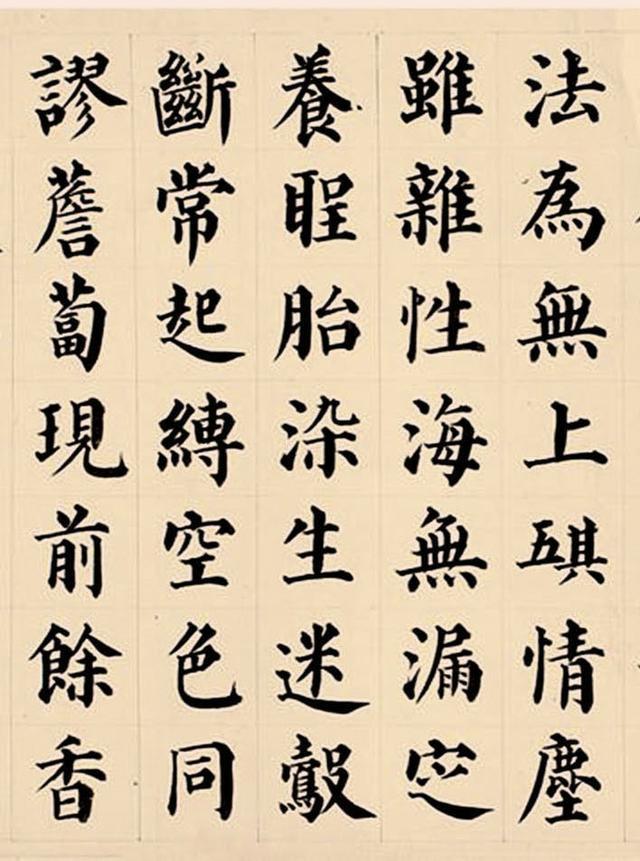 法為無上琪情塵
雖雜性海無漏㝎
養聖胎染生迷鷇
斷常起縛空色同
謬薝蔔現前餘香